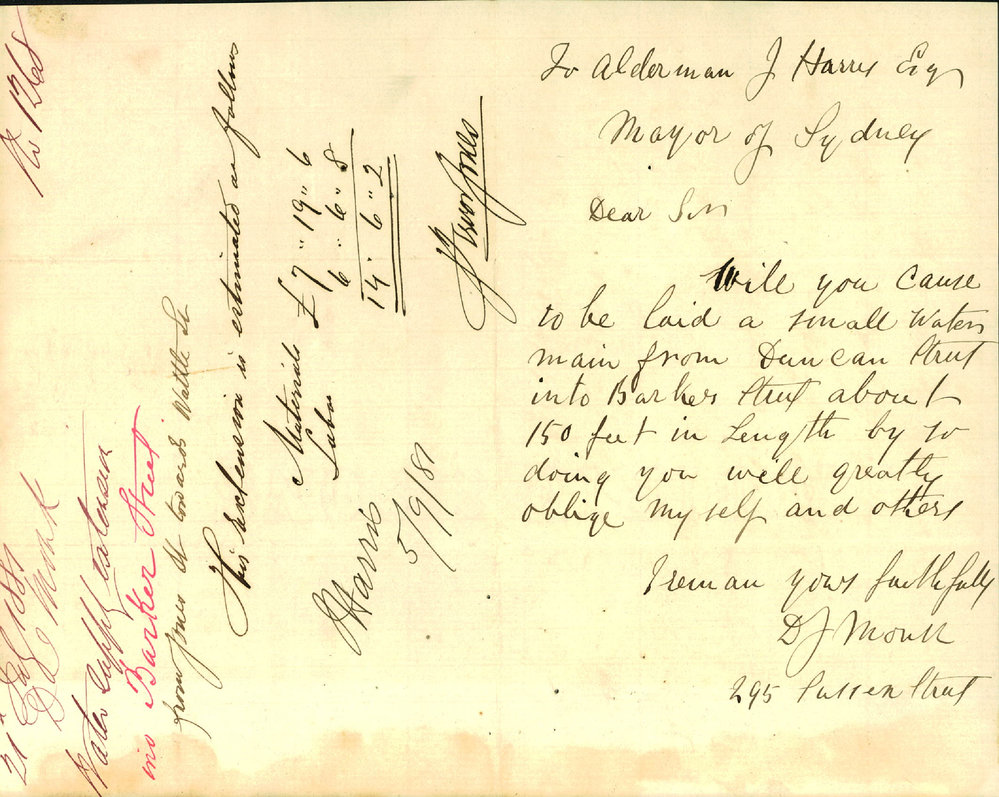 To Alderman J Harris Esq
Mayor of Sydney
Dear Sir
Will you cause
to be laid a small Water
main from Duncan Street
into Barker Street about
150 feet in Length by so
doing you will greatly
oblige My self and others
I reman yours faithfully
D J Monk
295 Sussex Street
No 1268
21st 1881
D J Monk
Water Supply extension
into Barker Street
from Jones St towards Wattle St
This extension is estimated as follows
Materials £ 7 " 19 " 6
Labor 6 " 6 " 8
14 " 6 " 2
J Harris
5/9/81